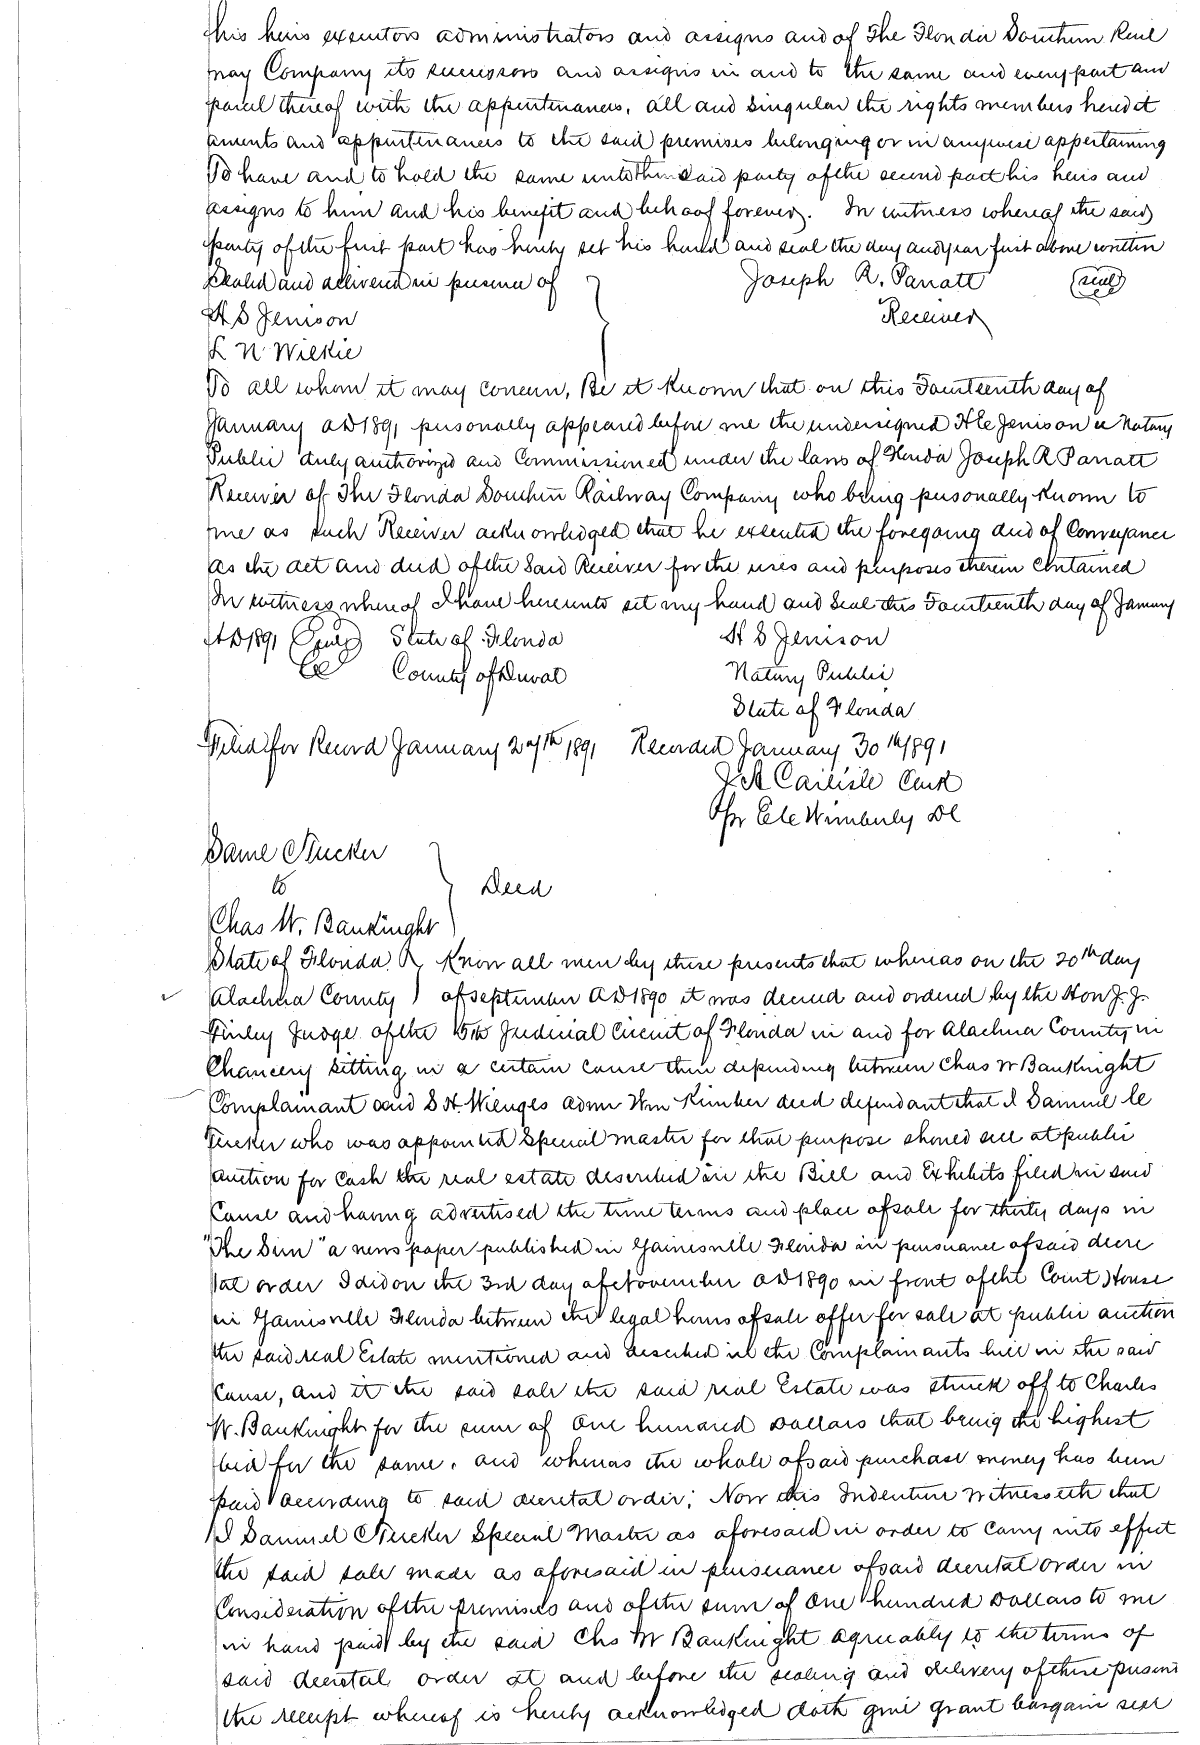 his heirs executors administrators and assigns and of The Florida Southern Rail
way Company its successors and assigns in and to the same and every part and
parcel thereof with the appurtenances, all and singular the rights members heredit
aments and appurtenances to the said premises belonging or in anywise appertaining
To have and to hold the same unto the said party of the second part his heirs and
assigns to him and his benefit and behoof forever. In witness whereof the said
party of the first part has hereby set his hand and seal the day and year first above written
Sealed and delivered in presence of Joseph R. Parrott (seal)
H S Jenison Receiver
L N Wilkie
To all whom it may concern, Be it Known that on this Fourteenth day of
January AD 1891 personally appeared before me the undersigned H S Jenison a Notary
Public duly authorized and Commissioned under the laws of Florida Joseph R Parrott
Receiver of The Florida Southern Railway Company who being personally known to
me as such Receiver acknowledged that he executed the foregoing deed of Conveyance
as the act and deed of the said Receiver for the uses and purposes therein contained
In witness whereof I have hereunto set my hand and seal this Fourteenth day of January
AD 1891 State of Florida H S Jenison
County of Duval Notary Public
State of Florida
Filed for Record January 27th 1891 Recorded January 30th 1891
J A Carlisle Clerk
Per Wimberly DC
Saml C Tucker
to Deed
Chas W. Banknight
State of Florida Know all men by these presents that whereas on the 20th day
Alachua County of September AD 1890 it was decreed and ordered by the Hon J. J.
Finley Judge of the 5th Judicial Circuit of Florida in and for Alachua County in
Chancery sitting in a certain cause then depending between Chas W Banknight
Complainant and S H Wienges admr Wm Kimber decd defendant that I Samuel C
Tucker who was appointed Special master for that purpose should sell at public
auction for cash the real estate described in the Bill and Exhibits filed in said
Cause and having advertised the time terms and place of sale for thirty days in
"The Sun" a newspaper published in Gainesville Florida in pursuance of said decre
tal order I did on the 3rd day of November AD 1890 in front of the Court House
in Gainesville Florida between the legal hours of sale offer for sale at public auction
the said real Estate mentioned and described in the Complainants bill in the said
Cause, and at the said sale the said real Estate was struck off to Charles
W. Banknight for the sum of One hundred Dollars that being the highest
bid for the same, and whereas the whole of said purchase money has been
paid according to said decretal order; Now this Indenture Witnesseth that
I Samuel C Tucker Special Master as aforesaid in order to carry into effect
the said sale made as aforesaid in pursuance of said decretal order in
Consideration of the premises and of the sum of One hundred Dollars to me
in hand paid by the said Chs W Banknight agreeably to the terms of
said decretal order at and before the sealing and delivery of these present
the receipt whereof is hereby acknowledged doth give grant bargain sell